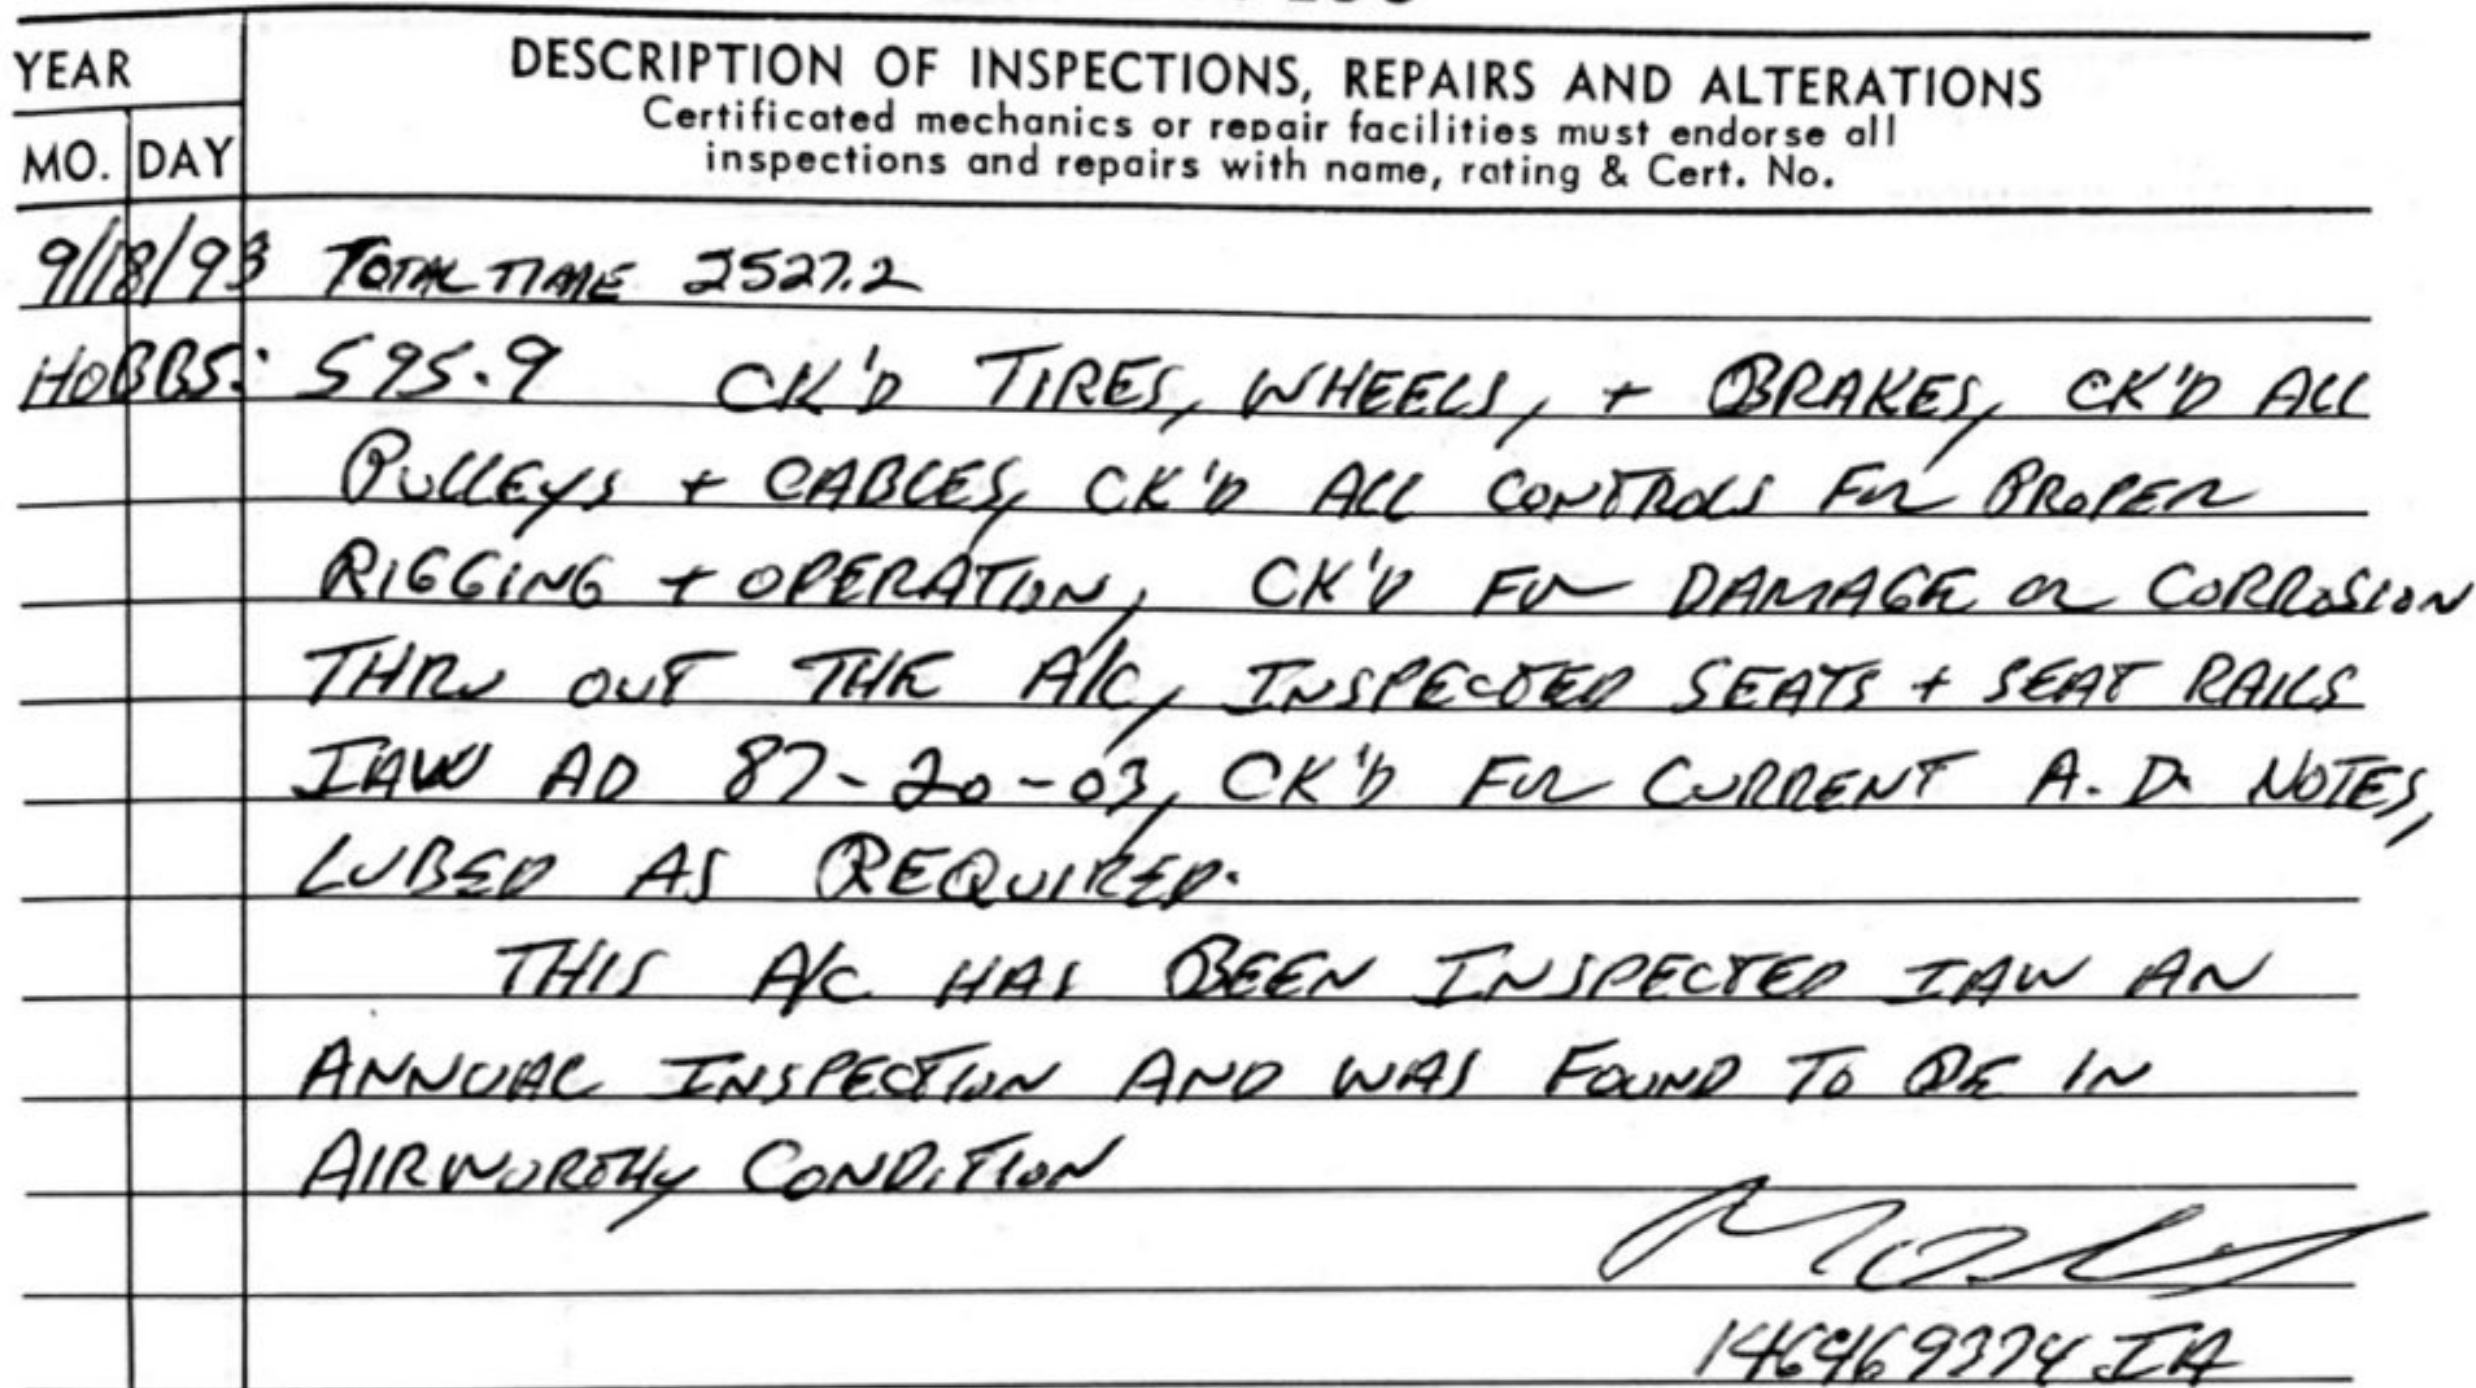 YEAR
DESCRIPTION OF INSPECTIONS, REPAIRS AND ALTERATIONS
Certificated mechanics or repair facilities must endorse all
MO. DAY
inspections and repairs with name, rating & Cert. No.
9/18/93 TOTAL TIME 2527.2
HOBBS: 595.9 CK'D TIRES, WHEELS, + BRAKES, CK'D ALL
PULLEYS + CABLES, CK'D ALL CONTROLS FOR PROPER
RIGGING + OPERATION, CK'D FOR DAMAGE OR CORROSION
THRU OUT THE A/C, INSPECTED SEATS + SEAT RAILS
IAW AD 87-20-03, CK'D FOR CURRENT A.D. NOTES,
LUBED AS REQUIRED.
THIS A/C HAS BEEN INSPECTED IAW AN
ANNUAL INSPECTION AND WAS FOUND TO BE IN
AIRWORTHY CONDITION
146469374 IA